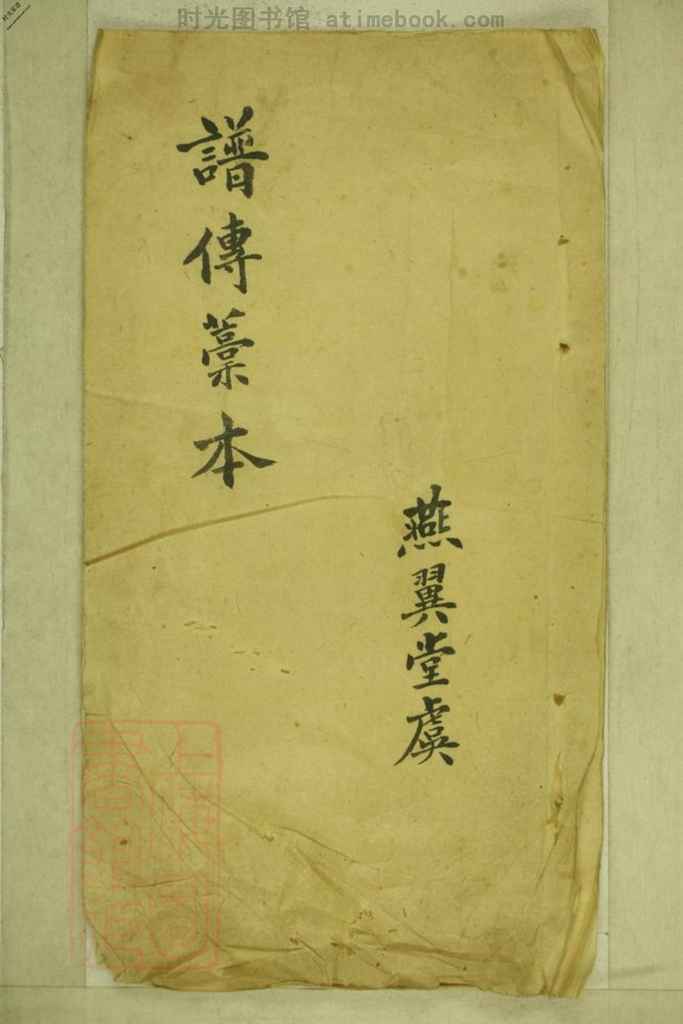 时光图书馆 atimebook.com
譜傳藁本
燕翼堂虞